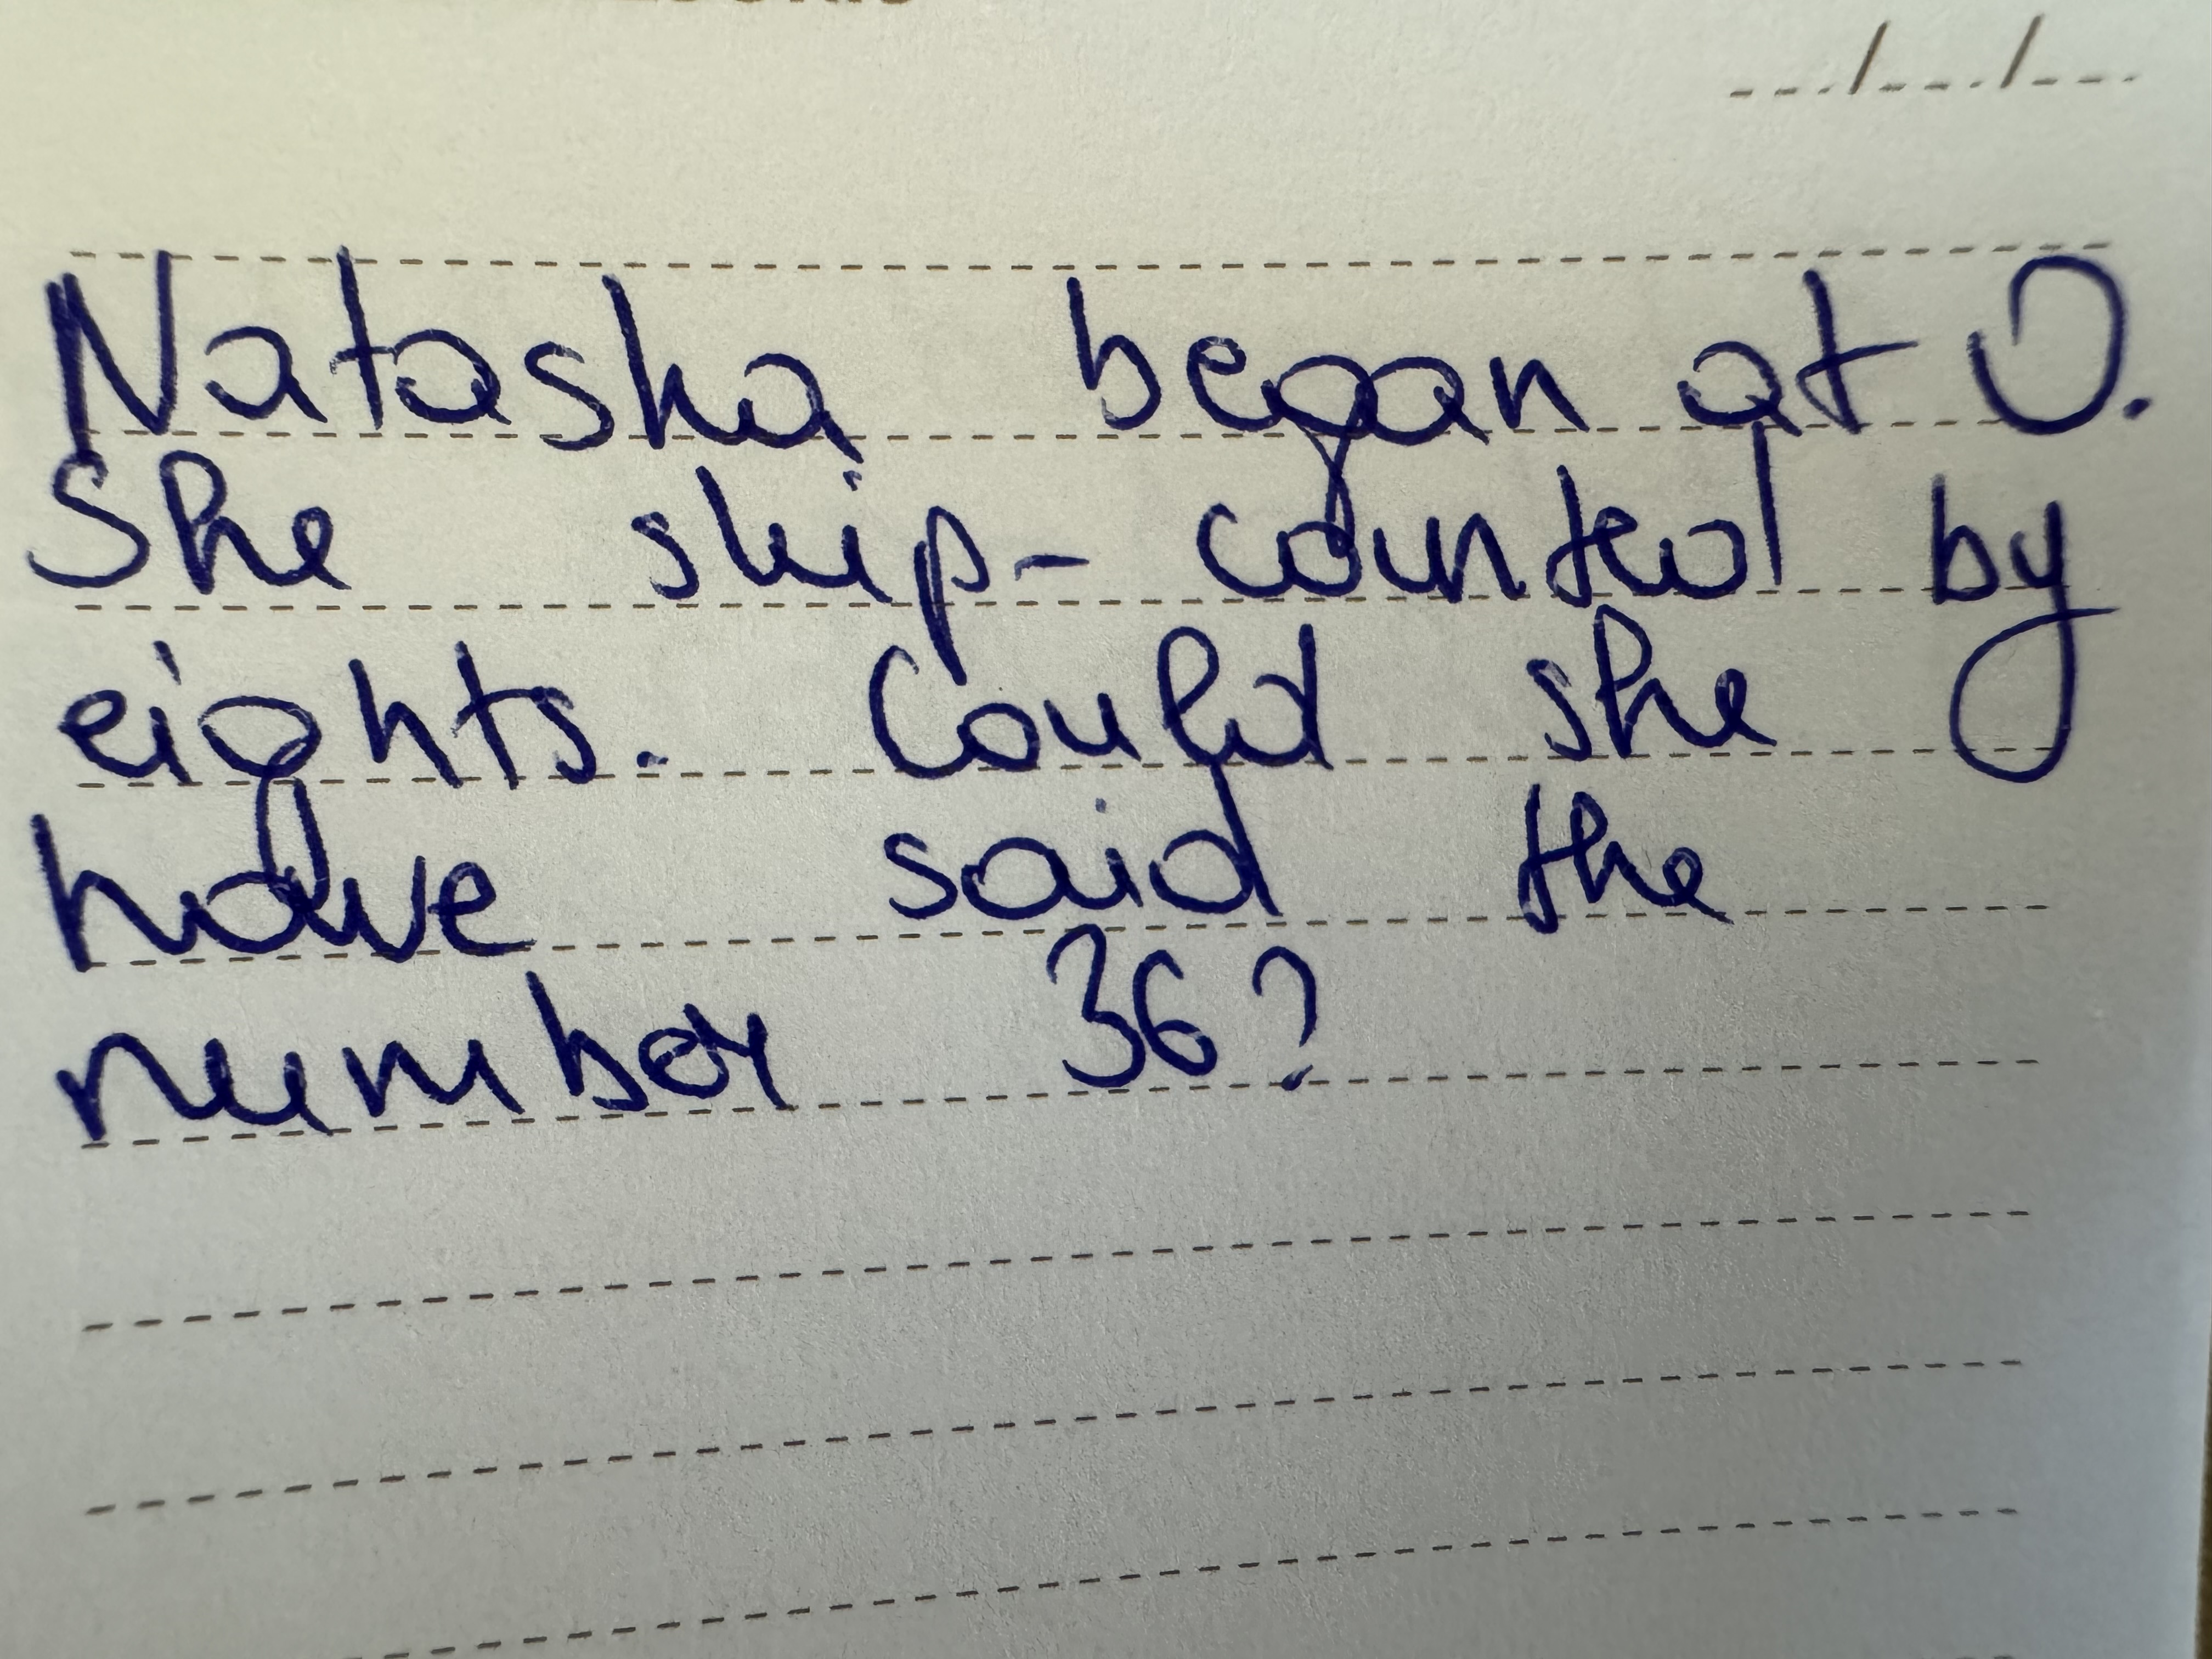 Natasha began at 0.
She skip-counted by
eights. Could she
have said the
number 36?